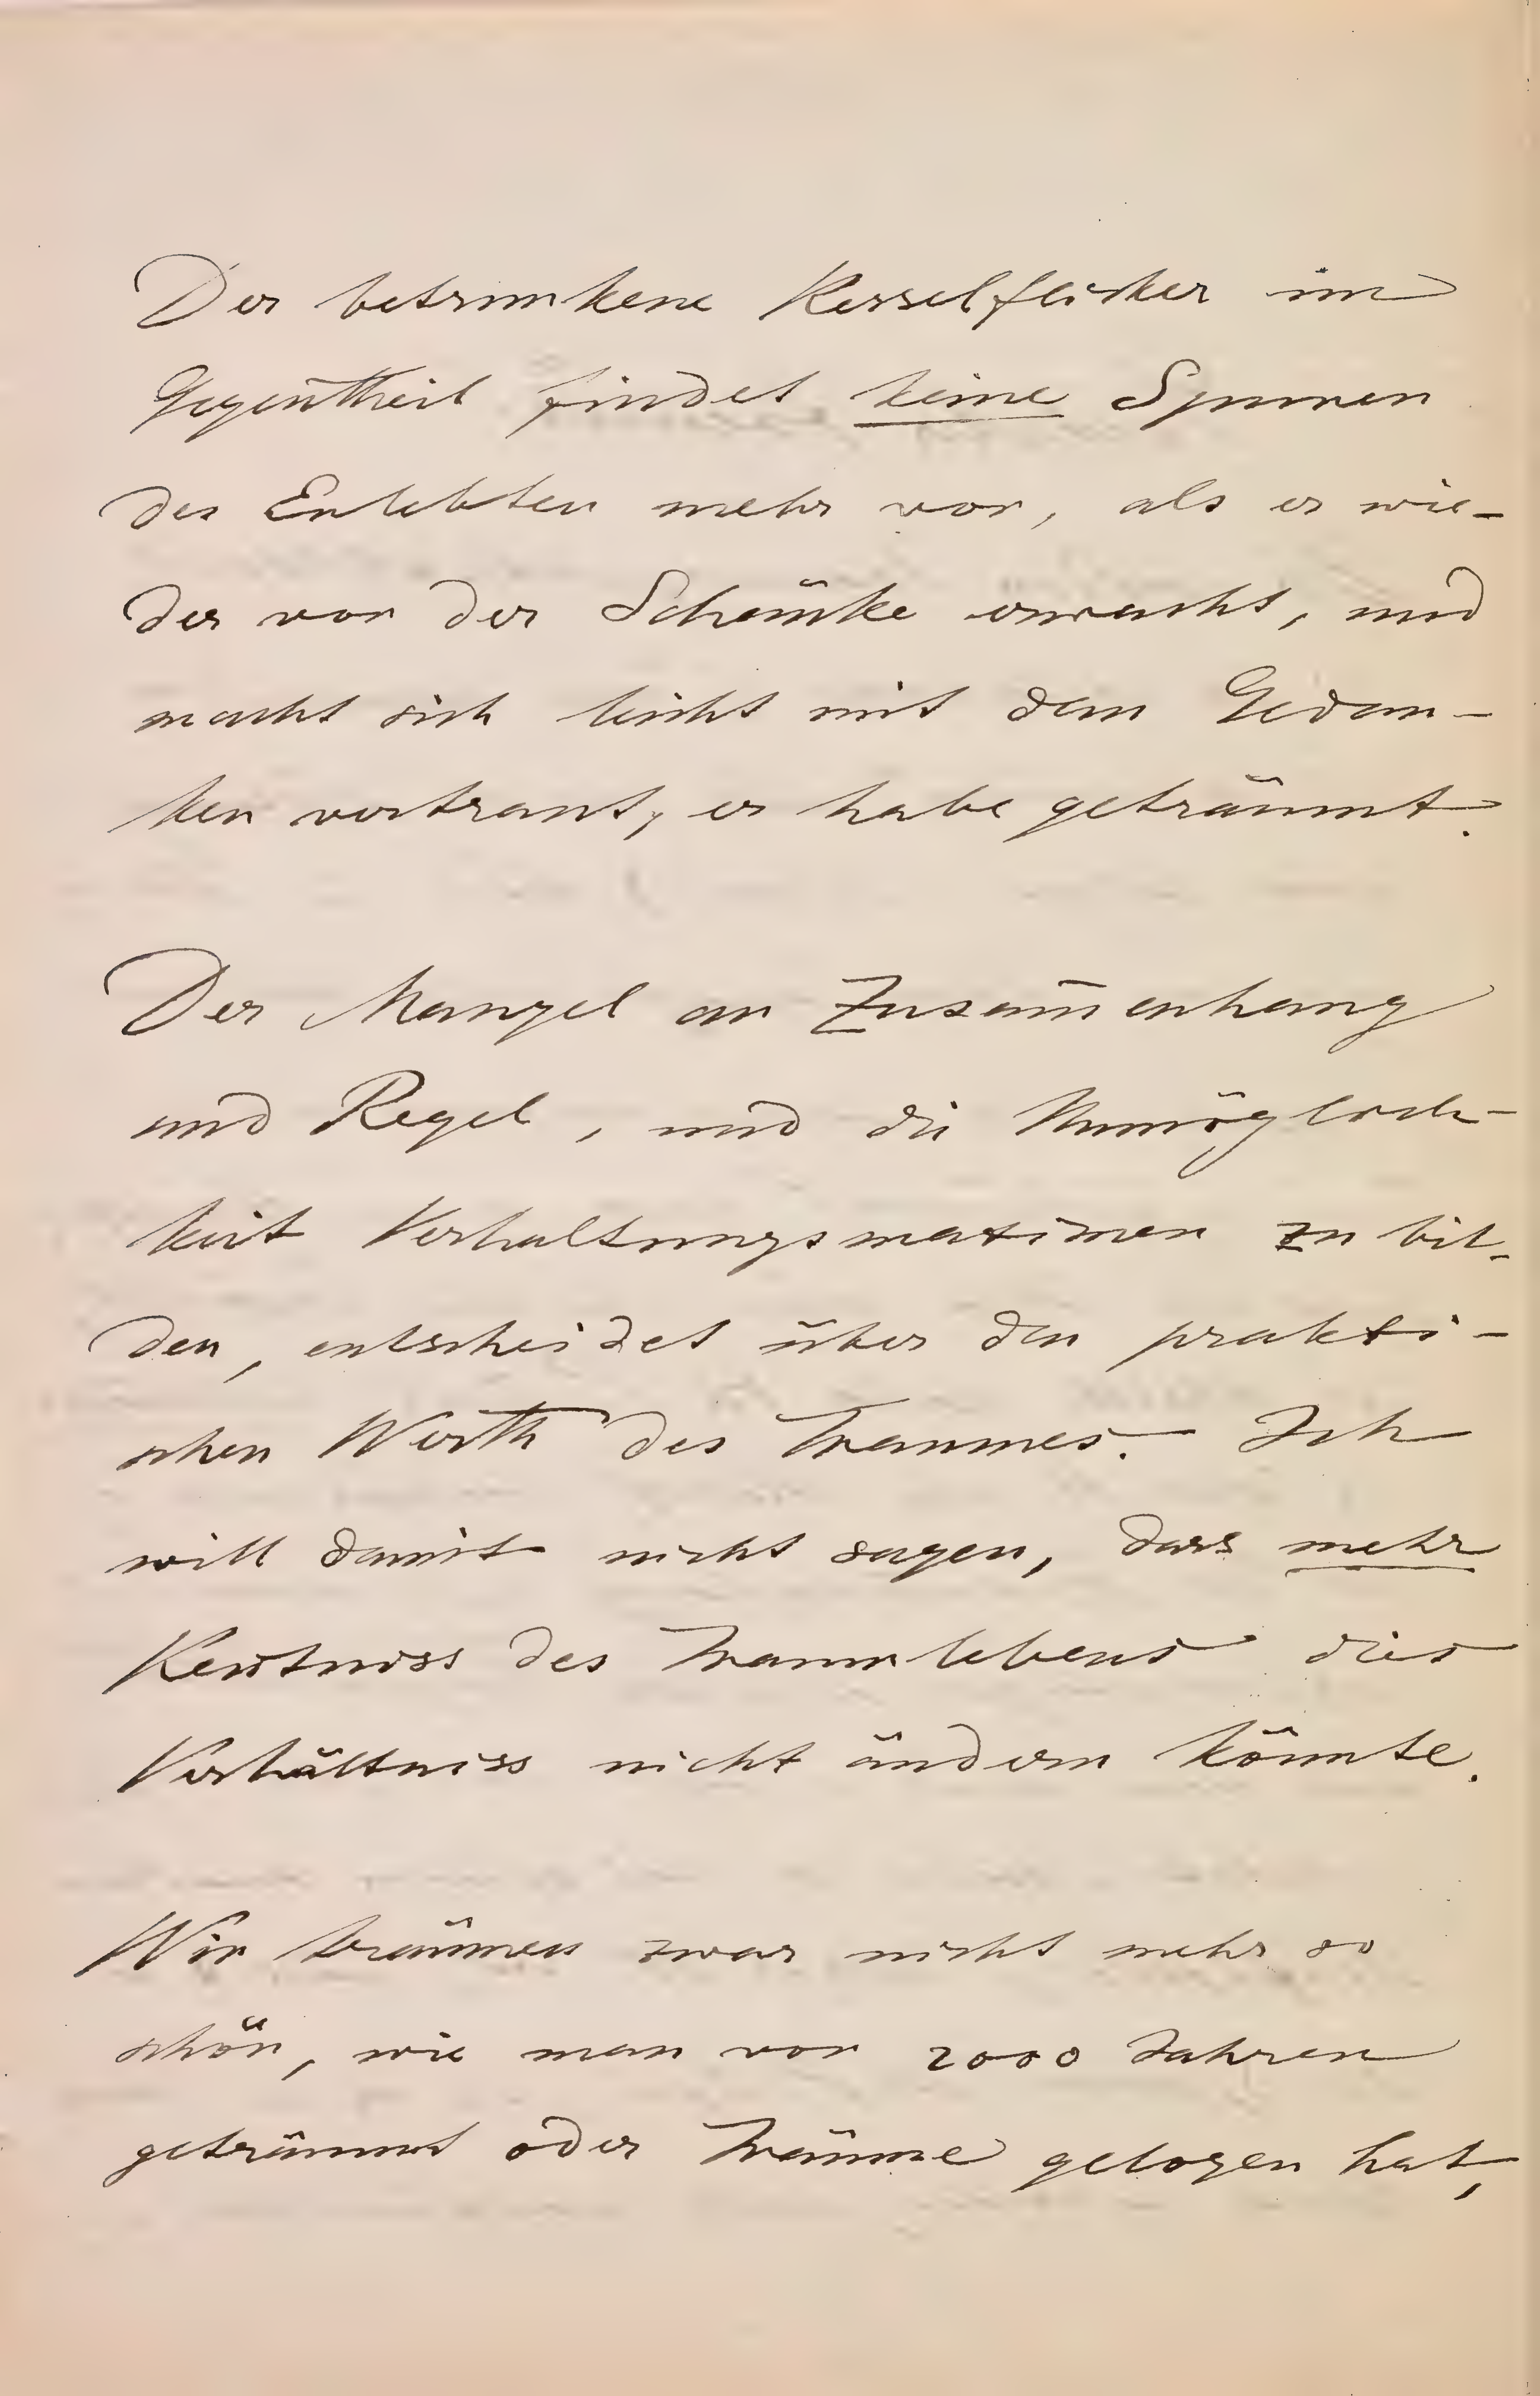 Der betrunkene Kesselflicker im
Gegentheil findet keine Spuren
des Erlebten mehr vor, als er wie-
der vor der Schenke erwacht, und
macht sich leicht mit dem Gedan-
ken vertraut, er habe geträumt.
Der Mangel an Zusam̄enhang
und Regel, und die Unmöglich-
keit Verhaltungsmaximen zu bil-
den, entscheidet über den prakti-
schen Werth des Traumes. Ich
will damit nicht sagen, dass mehr
Kentniss des Traumlebens dies
Verhältniss nicht ändern könnte.
Wir träumen zwar nicht mehr so
schön, wie man vor 2000 Jahren
geträumt oder Träume gelogen hat,